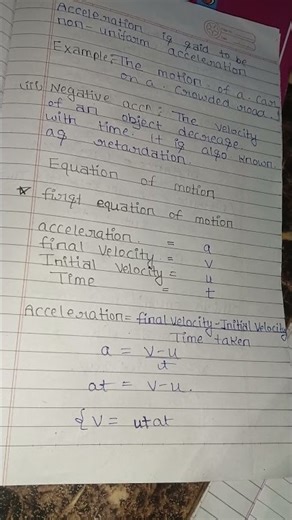 Acceleration is said to be
non-uniform acceleration
Example:- The motion of a car
on a crowded road.
(iii) Negative accn: The velocity
of an object decrease
with time. It is also known
as retardation.
Equation of motion
* first equation of motion
acceleration = a
final velocity = v
Initial velocity = u
Time = t
Acceleration = final velocity - Initial velocity
Time taken
a = v-u
t
at = v-u.
{ v = u+at